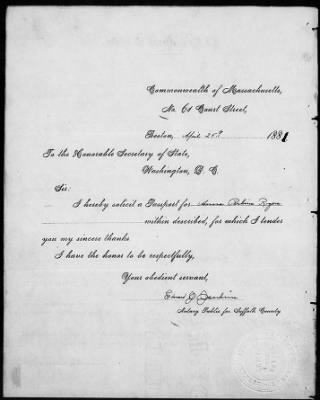 Commonwealth of Massachusetts,
No. 61 Court Street,
Boston, April 25th 1881
To the Honorable Secretary of State,
Washington, D. C.
Sir:
I hereby solicit a Passport for
within described, for which I tender
you my sincere thanks.
I have the honor to be respectfully,
Your obedient servant,
Edward J. Jenkins
Notary Public for Suffolk County